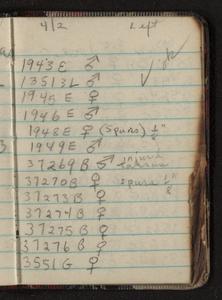 4/2 Left
ok
1943 E ♂
13513 L ♂
1945 E ♀
1946 E ♂
1948 E ♀ (Spurs) ½"
1949 E ♂
37269 B ♂
37270 B ♀ Spurs ⅛"
37273 B ♀
37274 B ♀
37275 B ♀
37276 B ♀
3551 G ♀